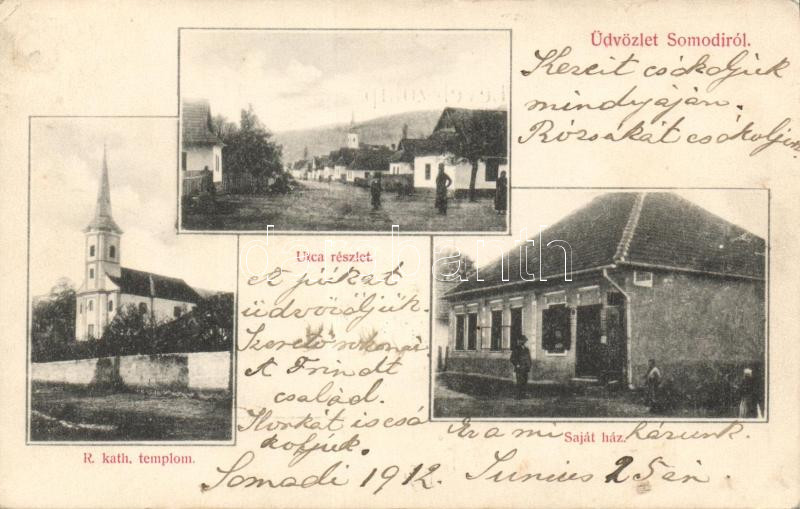 Üdvözlet Somodiról.
Kezeit csókoljuk
mindnyáján.
Rózsakát csókoljuk
Utca részlet.
A pükat
üdvözöljük.
Szerető rokonai
A Frindt
család.
Ilonkát is csó
koljuk.
R. kath. templom.
Ez a mi házunk.
Saját ház.
Somodi 1912. Junius 25 én.
darabanth